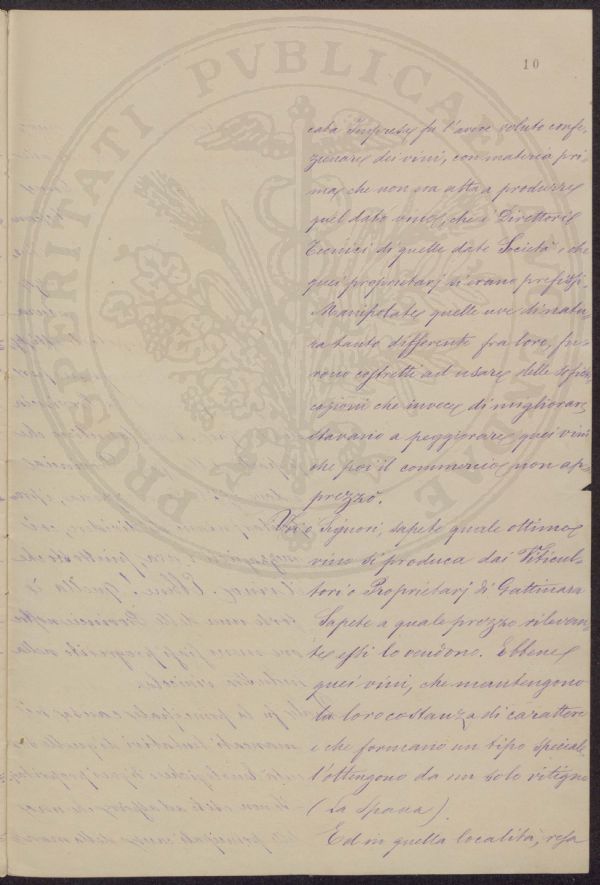 10
PROSPERITATI PVBLICAE AVGENDAE
cata Impresa fu l'avere voluto confe,
zionare dei vini, con materia pri,
ma, che non era atta a produrre
quel dato vino, che i Direttori e
Tecnici di quelle date Società e che
quei proprietarj si erano prefissi.
Manipolate quelle uve di natu,
ra tanto differenti fra loro, fu,
rono costretti ad usare delle
che invece di migliorare
stavano a peggiorare quei vini
che poi il commercio non ap,
prezzò.
Voi o Signori, sapete quale ottimo
vino si produca dai Viticul,
tori o Proprietarj di Gattinara
Sapete a quale prezzo rilevan,
te essi lo vendono. Ebbene
quei vini, che mantengono
la loro costanza di carattere
e che formano un tipo speciale
l'ottengono da un solo vitigno
(la Spana).
Ed in quella località, resa